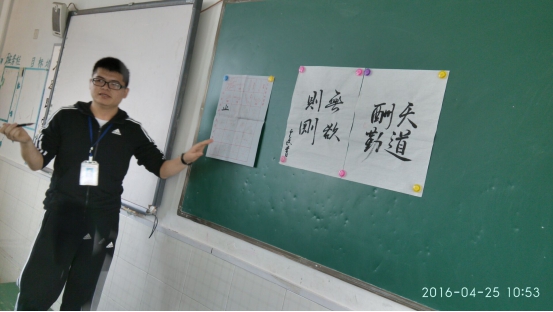 天道
酬勤
無欲
則剛
2016-04-25 10:53